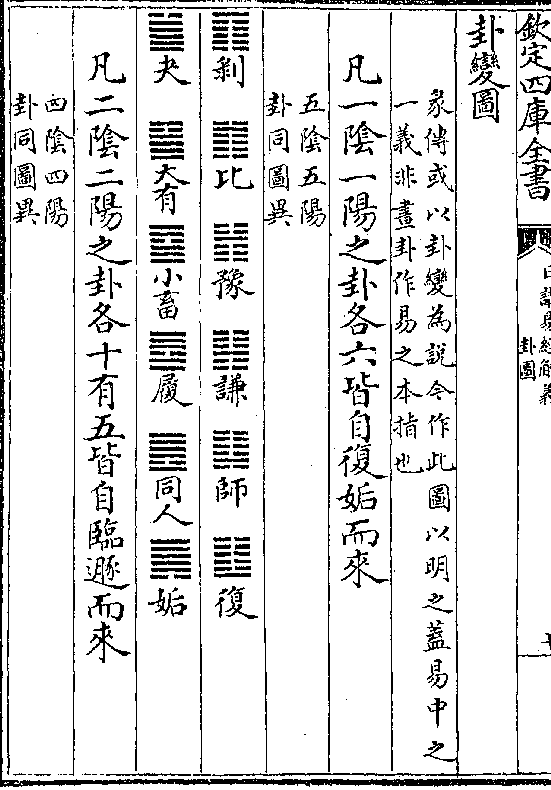 欽定四庫全書
卦圖
卦變圖
彖傳或以卦變為說今作此圖以明之蓋易中之
一義非畫卦作易之本指也
凡一陰一陽之卦各六皆自復姤而來
五陰五陽
卦同圖異
剝 比 豫 謙 師 復
夬 大有 小畜 履 同人 姤
凡二陰二陽之卦各十有五皆自臨遯而來
四陰四陽
卦同圖異